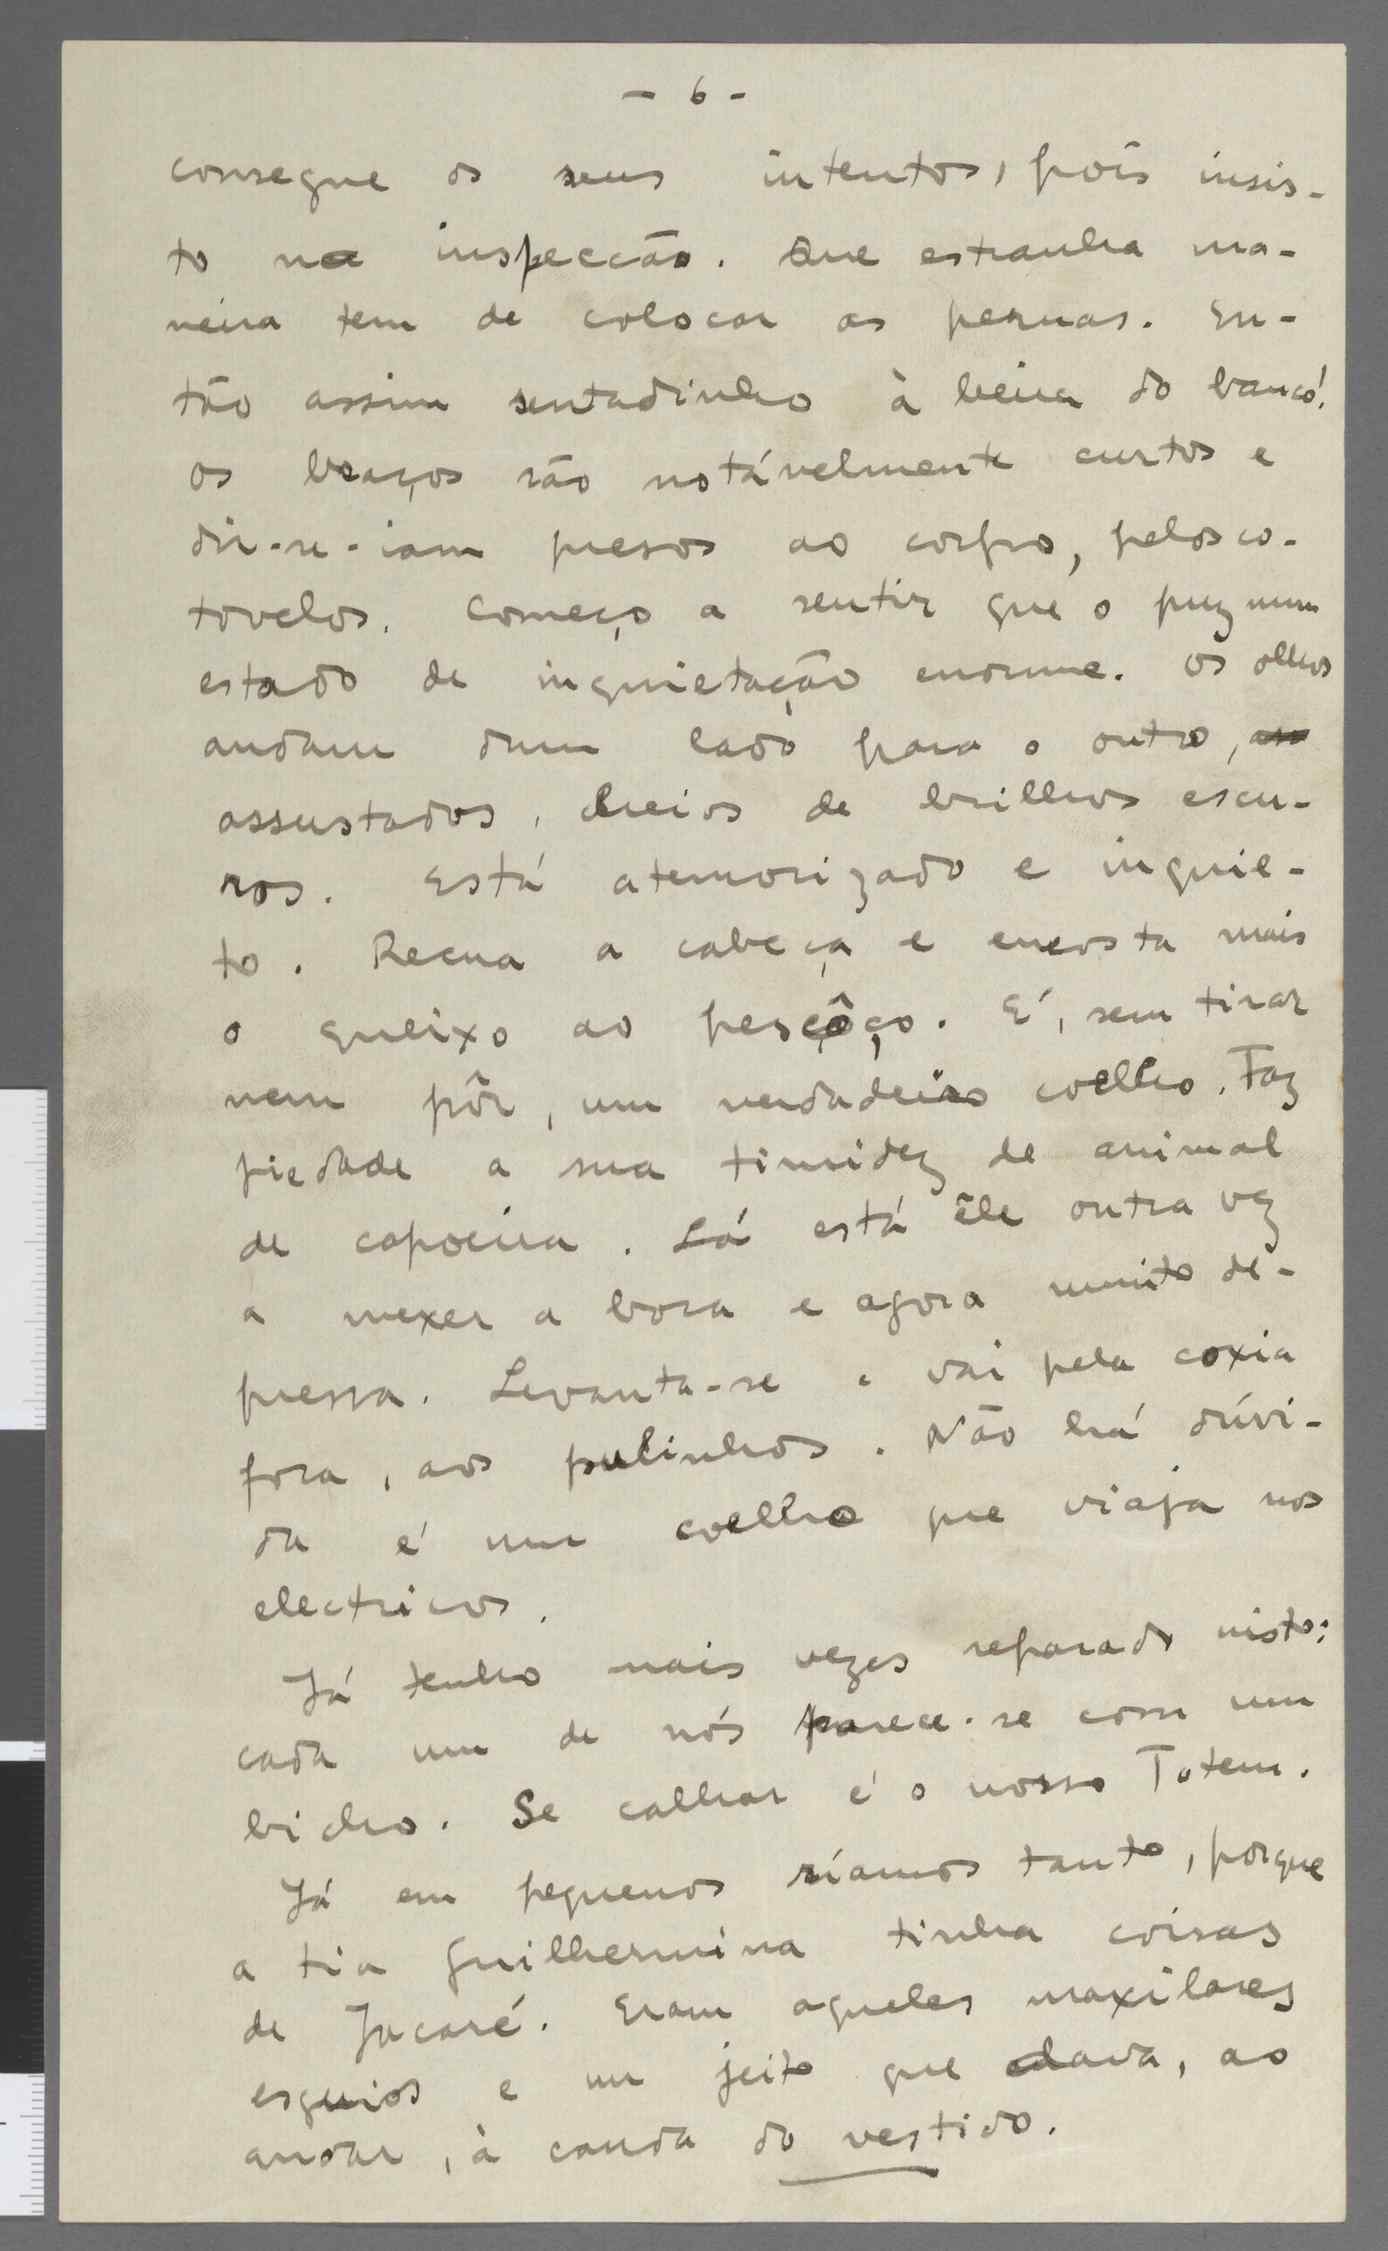 - 6 -
consegue os seus intentos, pois insis-
to na inspecção. Que estranha ma-
neira tem de colocar as pernas. En-
tão assim sentadinho à beira do banco!
Os braços são notávelmente curtos e
dir-se-iam presos ao corpo, pelos co-
tovelos. Começo a sentir que o puz num
estado de inquietação enorme. Os olhos
andam dum lado para o outro,
assustados, cheios de brilhos escu-
ros. Está atemorizado e inquie-
to. Recua a cabeça e encosta mais
o queixo ao pescôço. É, sem tirar
nem pôr, um verdadeiro coelho. Faz
piedade a sua timidez de animal
de capoeira. Lá está êle outra vez
a mexer a boca e agora muito de-
pressa. Levanta-se e vai pela coxia
fora, aos pulinhos. Não há dúvi-
da é um coelho que viaja nos
electricos.
Já tenho mais vezes reparado nisto:
cada um de nós parece-se com um
bicho. Se calhar é o nosso Totem.
Já em pequenos ríamos tanto, porque
a tia Guilhermina tinha coisas
de Jacaré. Eram aqueles maxilares
esguios e um jeito que dava, ao
andar, à cauda do vestido.